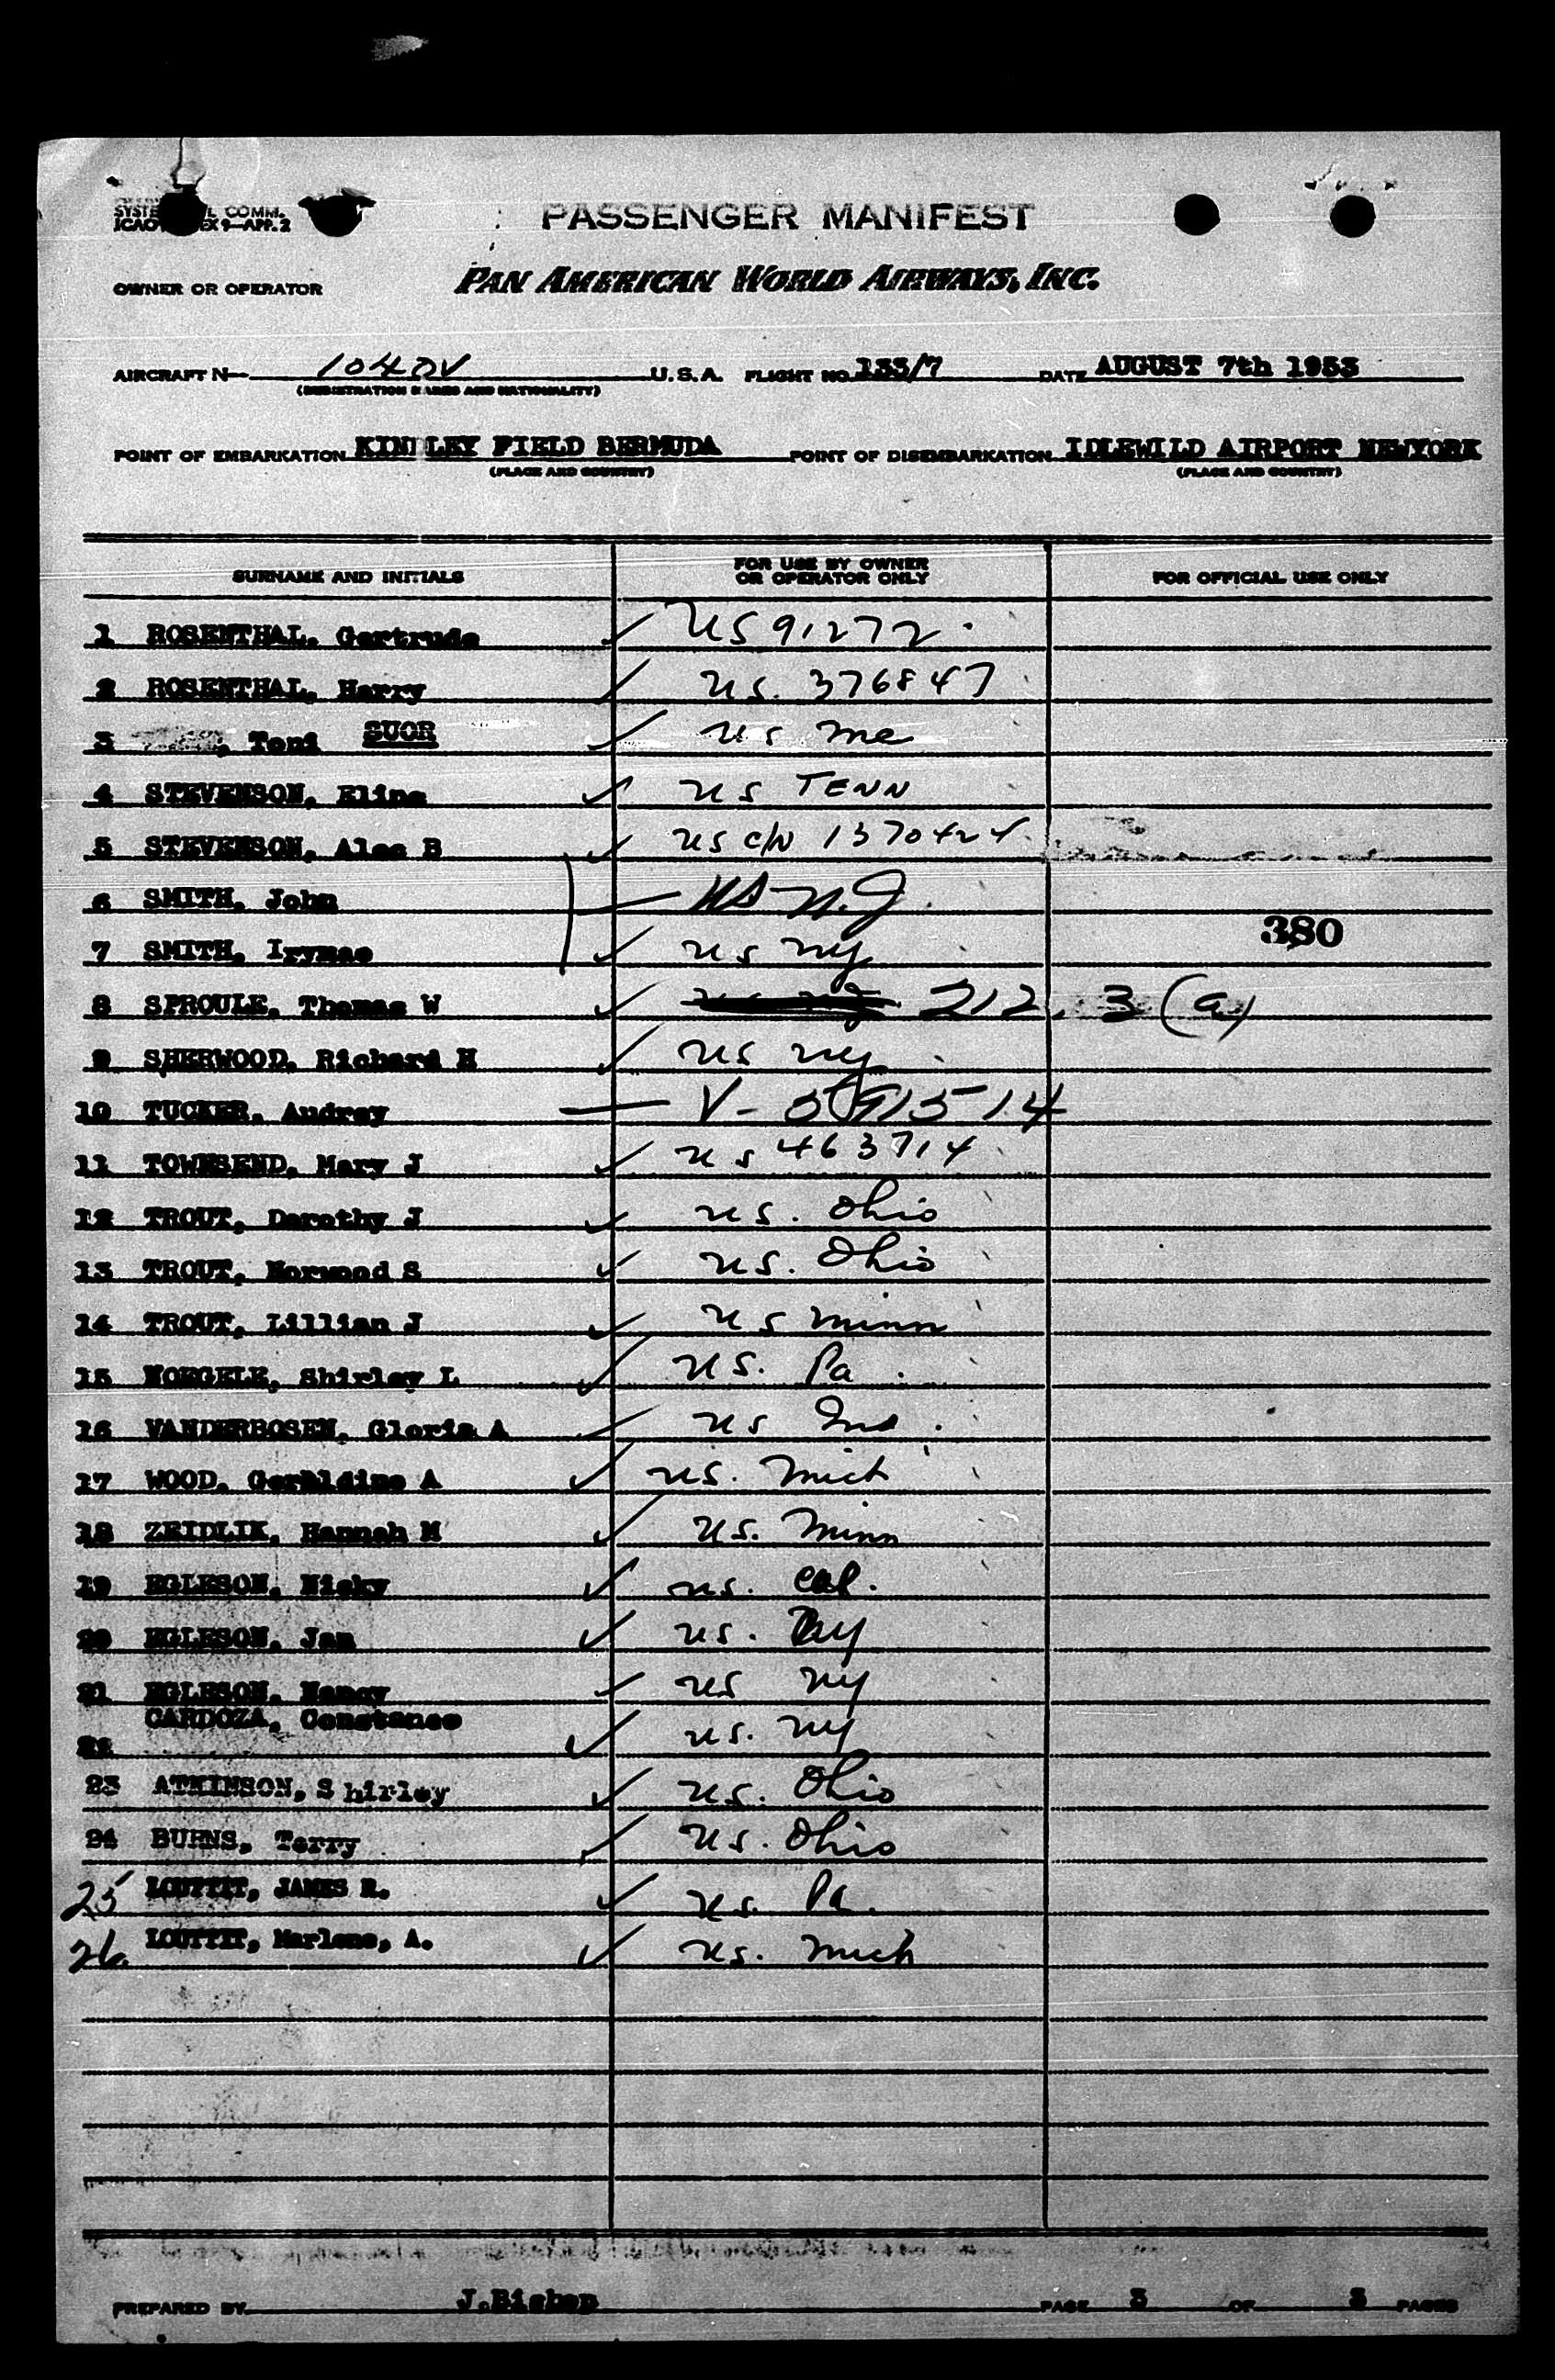 SYSTE L COMM.
ICAO EX 9—APP. 2
PASSENGER MANIFEST
OWNER OR OPERATOR PAN AMERICAN WORLD AIRWAYS, INC.
AIRCRAFT N— 1040V U.S.A. FLIGHT NO. 133/7 DATE AUGUST 7th 1953
(REGISTRATION MARKS AND NATIONALITY)
POINT OF EMBARKATION KINDLEY FIELD BERMUDA POINT OF DISEMBARKATION IDLEWILD AIRPORT NEWYORK
(PLACE AND COUNTRY) (PLACE AND COUNTRY)
SURNAME AND INITIALS FOR USE BY OWNER OR OPERATOR ONLY FOR OFFICIAL USE ONLY
1 ROSENTHAL, Gertrude ✓ US 91272
2 ROSENTHAL, Harry ✓ US. 376847
3 , Toni SUOR ✓ US me
4 STEVENSON, Eline ✓ US TENN
5 STEVENSON, Alec B ✓ US C/N 1370424
6 SMITH, John — US N.J.
7 SMITH, Irymae ✓ US NY
380
8 SPROULE, Thomas W ✓ 212.3(a)
9 SHERWOOD, Richard H ✓ US NY
10 TUCKER, Audrey — V-
11 TOWNSEND, Mary J ✓ US 463714
12 TROUT, Dorothy J ✓ US. Ohio
13 TROUT, Norwood S ✓ US. Ohio
14 TROUT, Lillian J ✓ US Minn
15 Shirley L ✓ US. Pa
16 VANDERBOSEN, Gloria A ✓ US Ind
17 WOOD, Geraldine A ✓ US. Mich
18 ZEIDLIK, Hannah M ✓ US. Minn
19 EGLESON, Nicky ✓ US. Cal.
20 EGLESON, Jan ✓ US. NY
21 EGLESON, Nancy ✓ US NY
CARDOZA, Constance
22 ✓ US. NY
23 ATKINSON, Shirley ✓ US. Ohio
24 BURNS, Terry ✓ US. Ohio
25 LOUTTIT, JAMES R. ✓ US. Pa.
26. LOUTTIT, Marlene, A. ✓ US. Mich
PREPARED BY J.Bishop PAGE 3 OF 3 PAGES